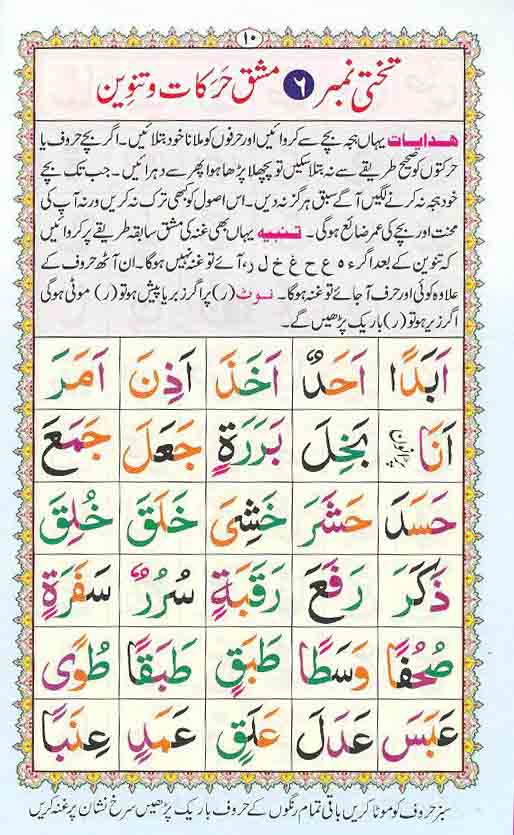 ١٠
تختی نمبر ٦ مشق حرکات و تنوین
ھدایات یہاں ہجہ بچے سے کروائیں اور حرفوں کو ملانا خود بتلائیں۔ اگر بچے حروف یا
حرکتوں کو صحیح طریقے سے نہ بتلا سکیں تو پچھلا پڑھا ہوا پھر سے دہرائیں۔ جب تک بچے
خود ہجہ نہ کرنے لگیں آگے سبق ہرگز نہ دیں۔ اس اصول کو کبھی ترک نہ کریں ورنہ آپ کی
محنت اور بچے کی عمر ضائع ہوگی۔ تنبیہ یہاں بھی غنہ کی مشق سابقہ طریقے پر کروائیں
کہ تنوین کے بعد اگر ء ہ ع ح غ خ ل ر، آئے تو غنہ نہیں ہوگا۔ ان آٹھ حروف کے
علاوہ کوئی اور حرف آجائے تو غنہ ہوگا۔ نوٹ (ر) پر اگر زبر یا پیش ہو تو (ر) موٹی ہوگی
اگر زیر ہو تو (ر) باریک پڑھیں گے۔
اَبَدًا اَحَدٌ اَخَذَ اَذِنَ اَمَرَ
اَنَا بَخِلَ بَرَرَةٍ جَعَلَ جَمَعَ
حَسَدَ حَشَرَ خَشِیَ خَلَقَ خُلِقَ
ذَكَرَ رَفَعَ رَقَبَةٍ سُرُرٌ سَفَرَةٍ
صُحُفًا وَسَطًا طَبَقٍ طَبَقًا طُوًی
عَبَسَ عَدَلَ عَلَقٍ عَمَدٍ عِنَبًا
سبز حروف کو موٹا کریں باقی تمام رنگوں کے حروف باریک پڑھیں سرخ نشان پر غنہ کریں